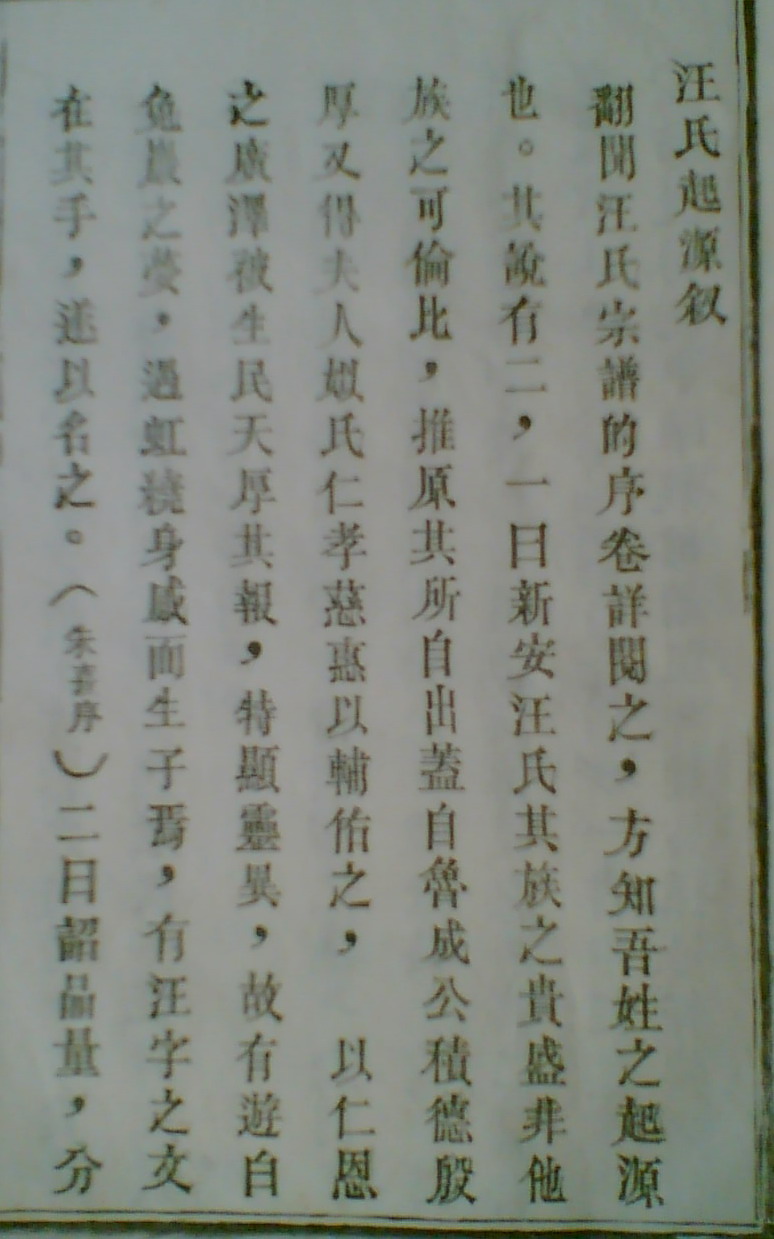 汪氏起源叙
翻閱汪氏宗譜的序卷詳閱之，方知吾姓之起源
也。其說有二，一曰新安汪氏其族之貴盛非他
族之可倫比，推原其所自出蓋自魯成公積德殷
厚又得夫人姒氏仁孝慈惠以輔佑之，以仁恩
之廣澤被生民天厚其報，特顯靈異，故有遊白
兔巖之夢，過虹繞身感而生子焉，有汪字之文
在其手，遂以名之。（朱熹序）二曰韶品量，分